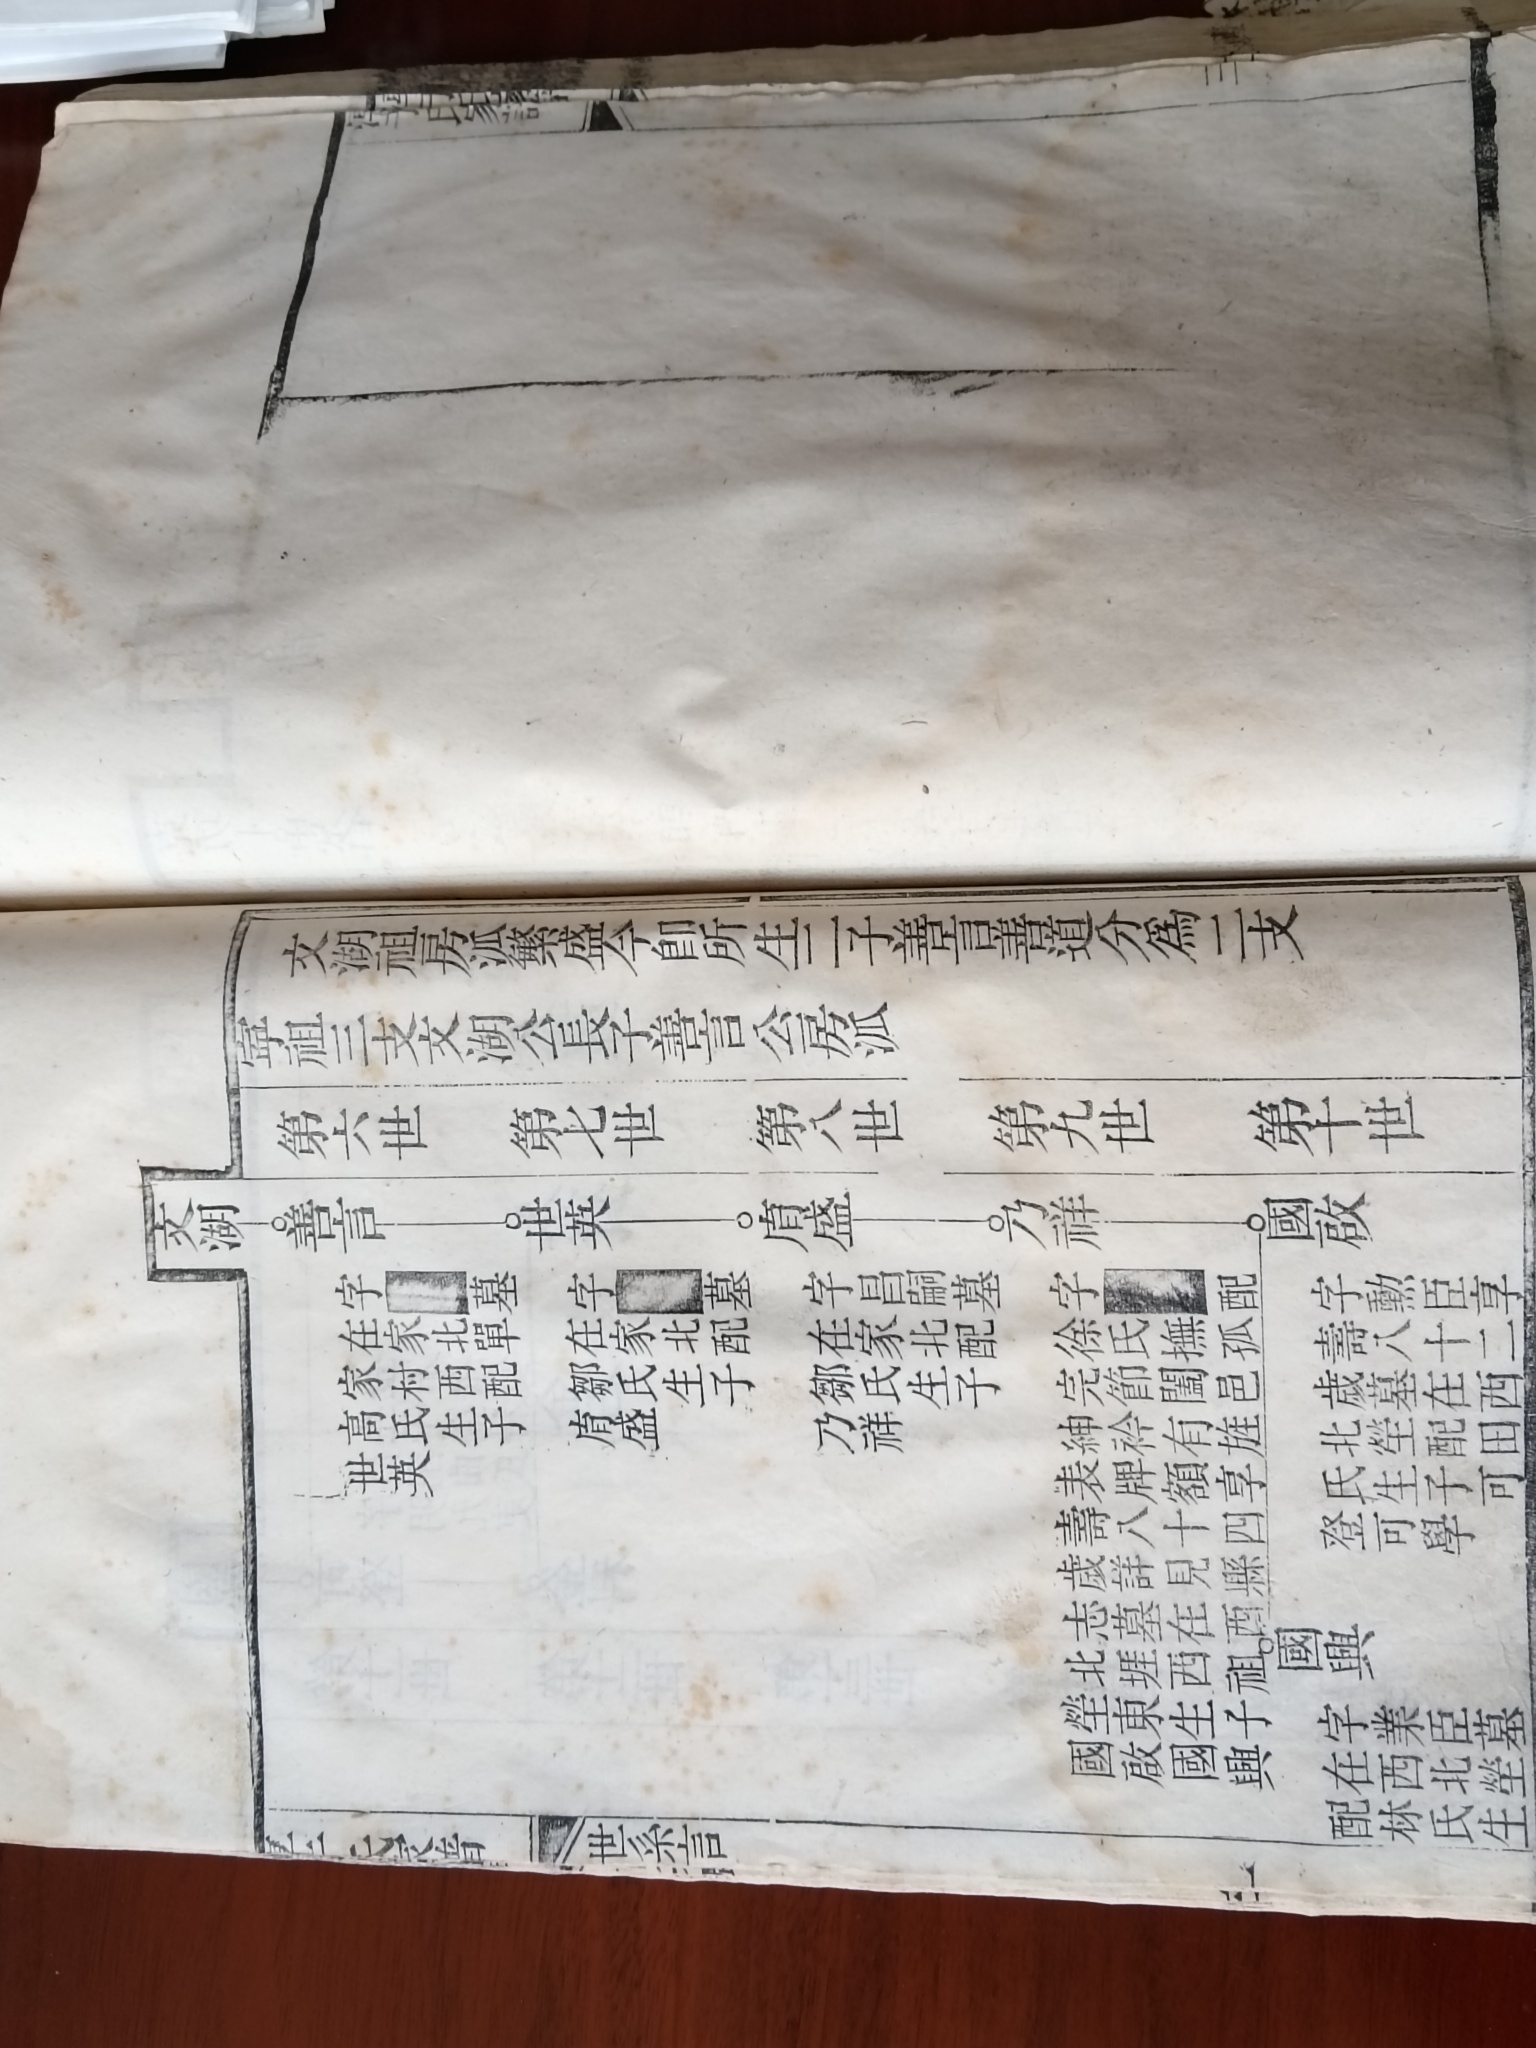 文湖祖房派繁盛今即所生二子善言善道分爲二支
寧祖三支文湖公長子善言公房派
第六世
第七世
第八世
第九世
第十世
文湖
善言
字 墓
在家北單
家村西配
高氏生子
世英
世英
字 墓
在家北配
鄒氏生子
盛
盛
字昌嗣墓
在家北配
鄒氏生子
乃祥
乃祥
字 配
徐氏撫孤
完節闔邑
紳衿有旌
表牌額享
壽八十四
歲詳見縣
志墓在西
北堐西祖
塋東生子
國啟國興
國啟
字勳臣享
壽八十二
歲墓在西
北塋配田
氏生子可
登可學
國興
字業臣墓
在西北塋
配林氏生
世系言